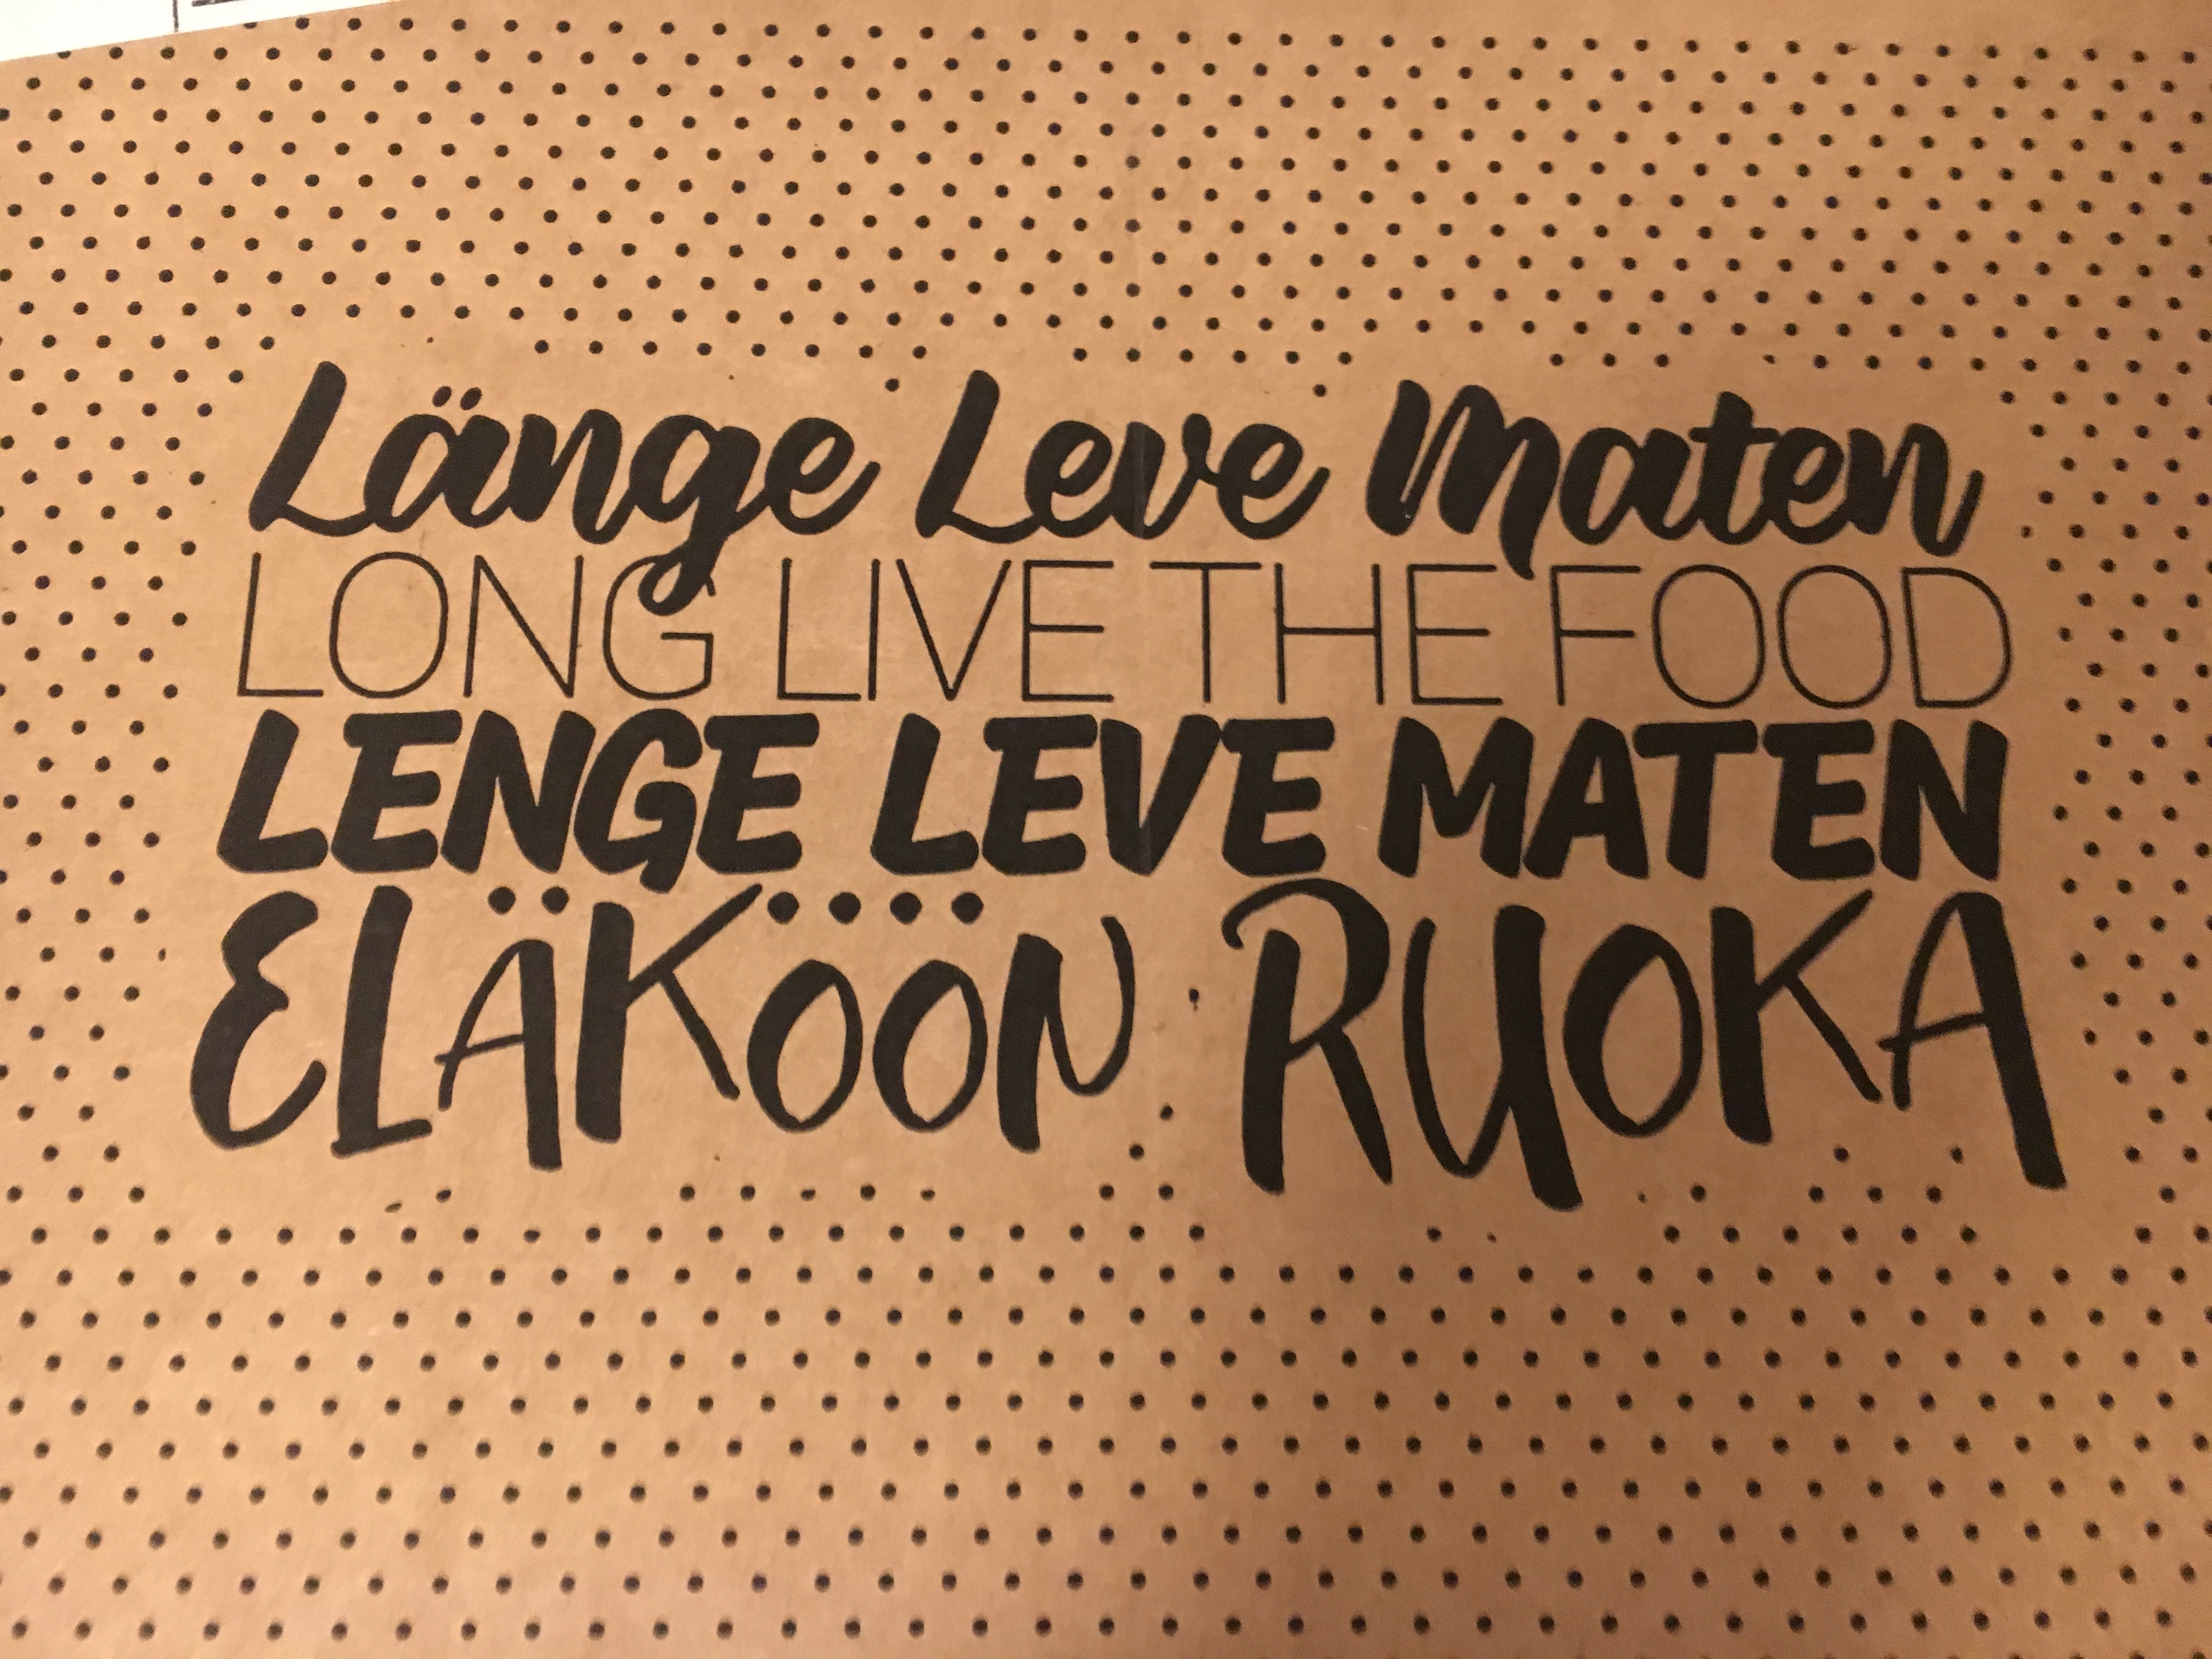 Länge Leve Maten
LONG LIVE THE FOOD
LENGE LEVE MATEN
ELÄKÖÖN RUOKA